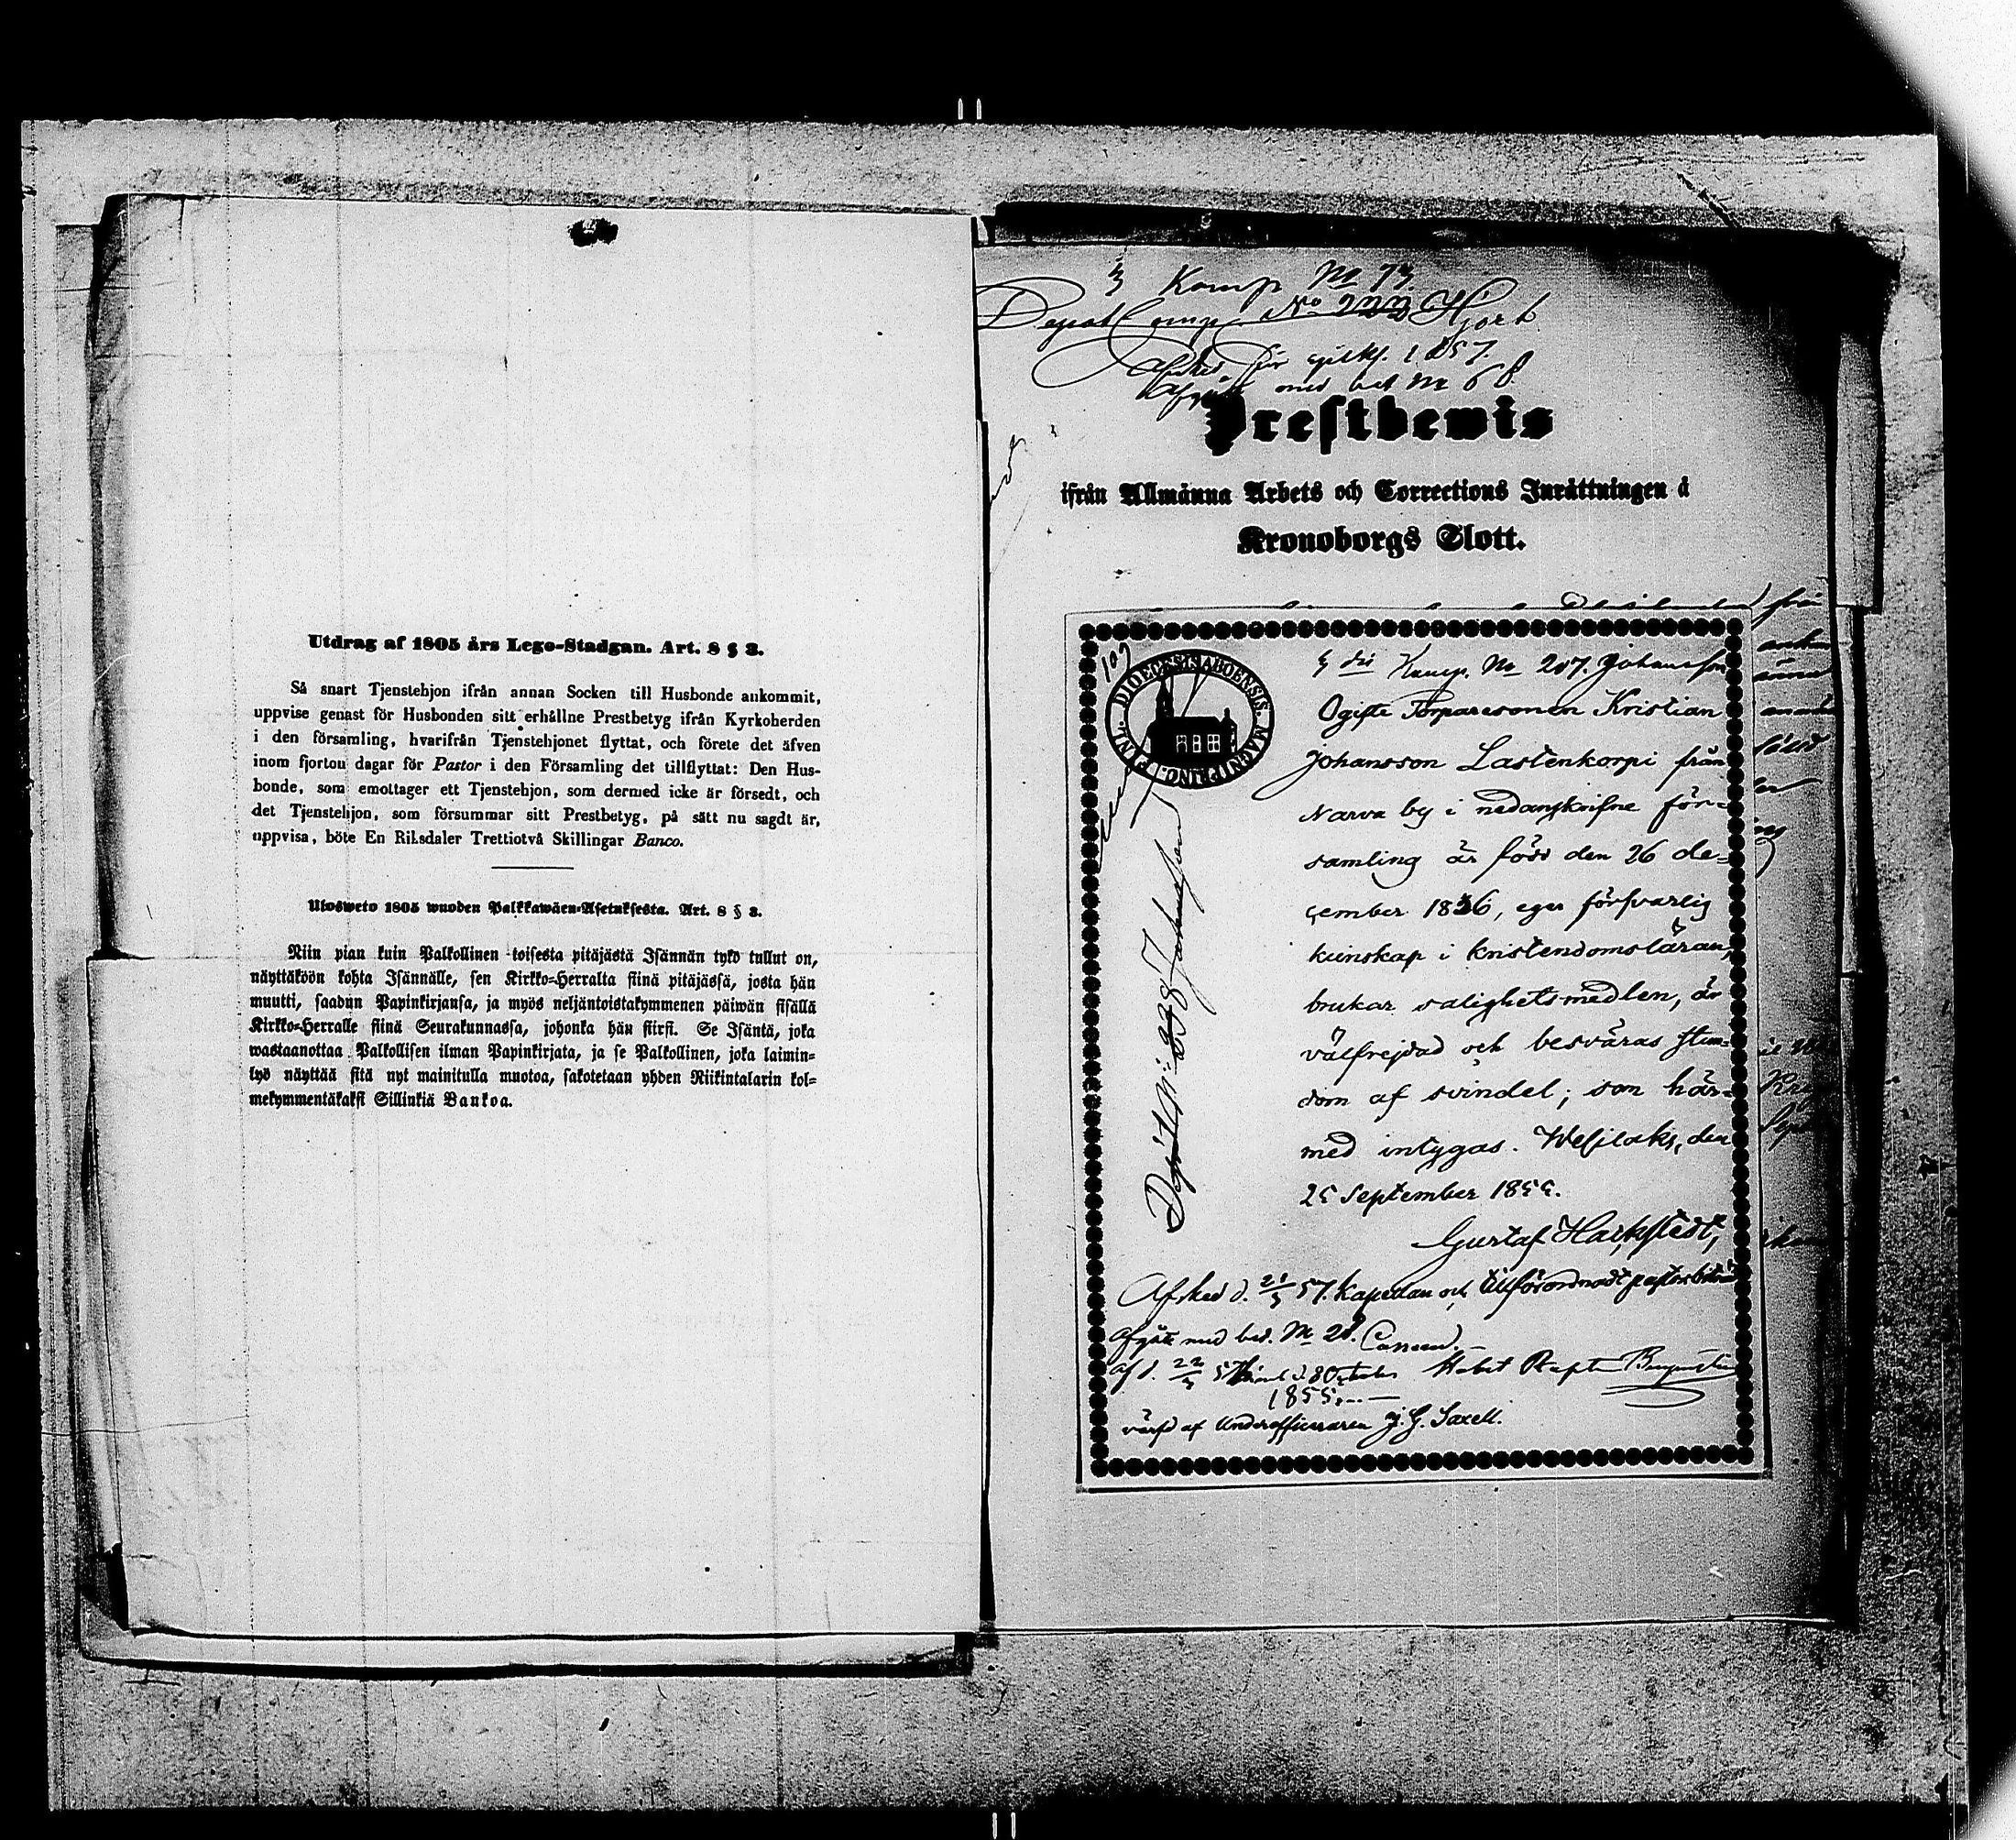 Utdrag af 1805 års Lego-Stadgan. Art. 8 § 3.
Så snart Tjenstehjon ifrån annan Socken till Husbonde ankommit,
uppvise genast för Husbonden sitt erhållne Prestbetyg ifrån Kyrkoherden
i den församling, hvarifrån Tjenstehjonet flyttat, och förete det äfven
inom fjorton dagar för Pastor i den Församling det tillflyttat: Den Hus-
bonde, som emottager ett Tjenstehjon, som dermed icke är försedt, och
det Tjenstehjon, som försummar sitt Prestbetyg, på sätt nu sagdt är,
uppvisa, böte En Riksdaler Trettiotvå Skillingar Banco.
Ulosweto 1805 wuoden Palkkawäen-Asetuksesta. Art. 8 § 3.
Niin pian kuin Palkollinen toisesta pitäjästä Isännän tykö tullut on,
näyttäköön kohta Isännälle, sen Kirkko-Herralta siinä pitäjässä, josta hän
muutti, saadun Papinkirjansa, ja myös neljäntoistakymmenen päiwän sisällä
Kirkko-Herralle siinä Seurakunnassa, johonka hän siirsi. Se Isäntä, joka
wastaanottaa Palkollisen ilman Papinkirjata, ja se Palkollinen, joka laimin-
lyö näyttää sitä nyt mainitulla muotoa, sakotetaan yhden Riikintalarin kol-
mekymmentäkaksi Sillinkiä Bankoa.
3 Komp No 73
Depot Comp No 222 Hjort
Afsked för 1857.
Afgått med bet No 68
Prestbewis
ifrån Allmänna Arbets och Corrections Inrättningen å
Kronoborgs Slott.
107
DIOECESIS ABOENSIS. MAGNI PRINC. FINL.
Komp. No 207. Johansson
Ogifte Torparesonen Kristian
Johansson Lastenkorpi från
Narva by i nedanskrifne för-
samling är född den 26 de-
cember 1836, eger försvarlig
kunskap i kristendomsläran,
brukar salighetsmedlen, är
välfrejdad och besväras stun-
dom af svindel; som här-
med intygas. Wesilaks, den
25 September 1855.
Gustaf Hackstedt,
Kapellan och tillförordnadt pastorsbiträde
Depôt No 238 Johansson
Afsked d. 21/3 57.
Afgått med bet. No 28.
af d. 22/3 57
1855.
värfd af Underofficeraren J. G. Saxell.